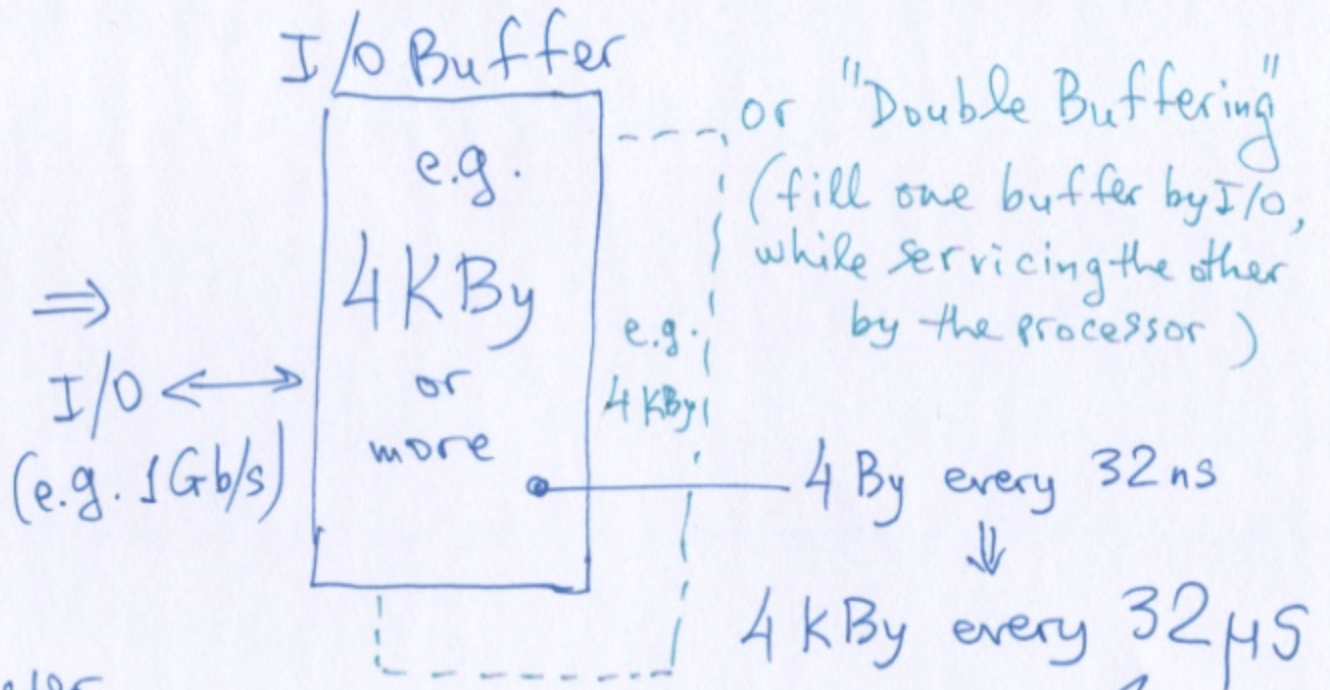 I/O Buffer
e.g.
4 KBy
or
more
⇒
I/O ↔
(e.g. 1Gb/s)
or "Double Buffering"
(fill one buffer by I/O,
while servicing the other
by the processor)
e.g.
4 KBy
4 By every 32 ns
⇓
4 kBy every 32 μs